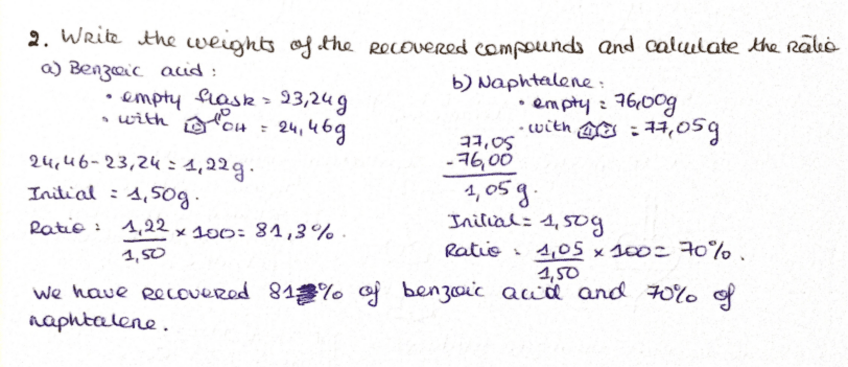 2. Write the weights of the recovered compounds and calculate the ratio
a) Benzoic acid :
• empty flask = 23,24g
• with OH = 24,46g
24,46-23,24 = 1,22g.
Initial = 1,50g.
Ratio : 1,22/1,50 x 100 = 81,3%.
b) Naphtalene :
• empty = 76,00g
• with = 77,05g
77,05
-76,00
1,05g.
Initial = 1,50g
Ratio : 1,05/1,50 x 100 = 70%.
We have recovered 81% of benzoic acid and 70% of
naphtalene.